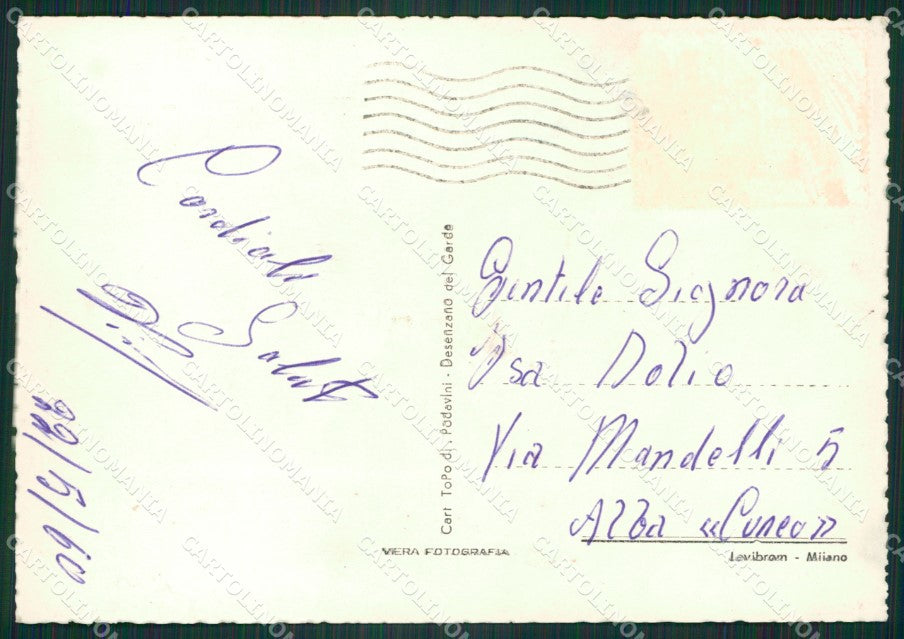 Cordiali
Saluti
Gentile Signora
Isa Dolio
Via Mandelli 5
Alba «Cuneo»
Cart ToPo di. Padavini - Desenzano del Garda
VERA FOTOGRAFIA
Levibrom - Milano
CARTOLINOMANIA